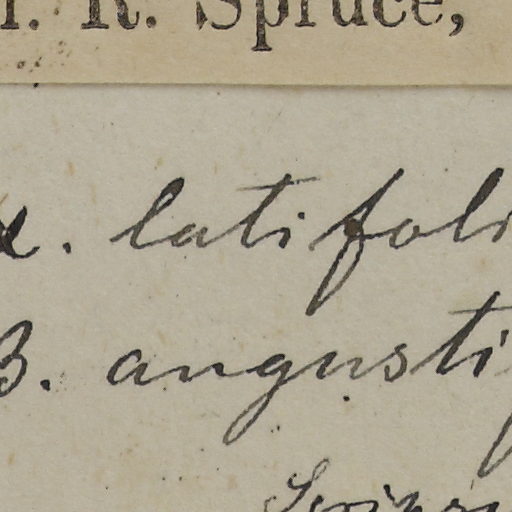 R. Spruce,
α. latifoli
β. angusti